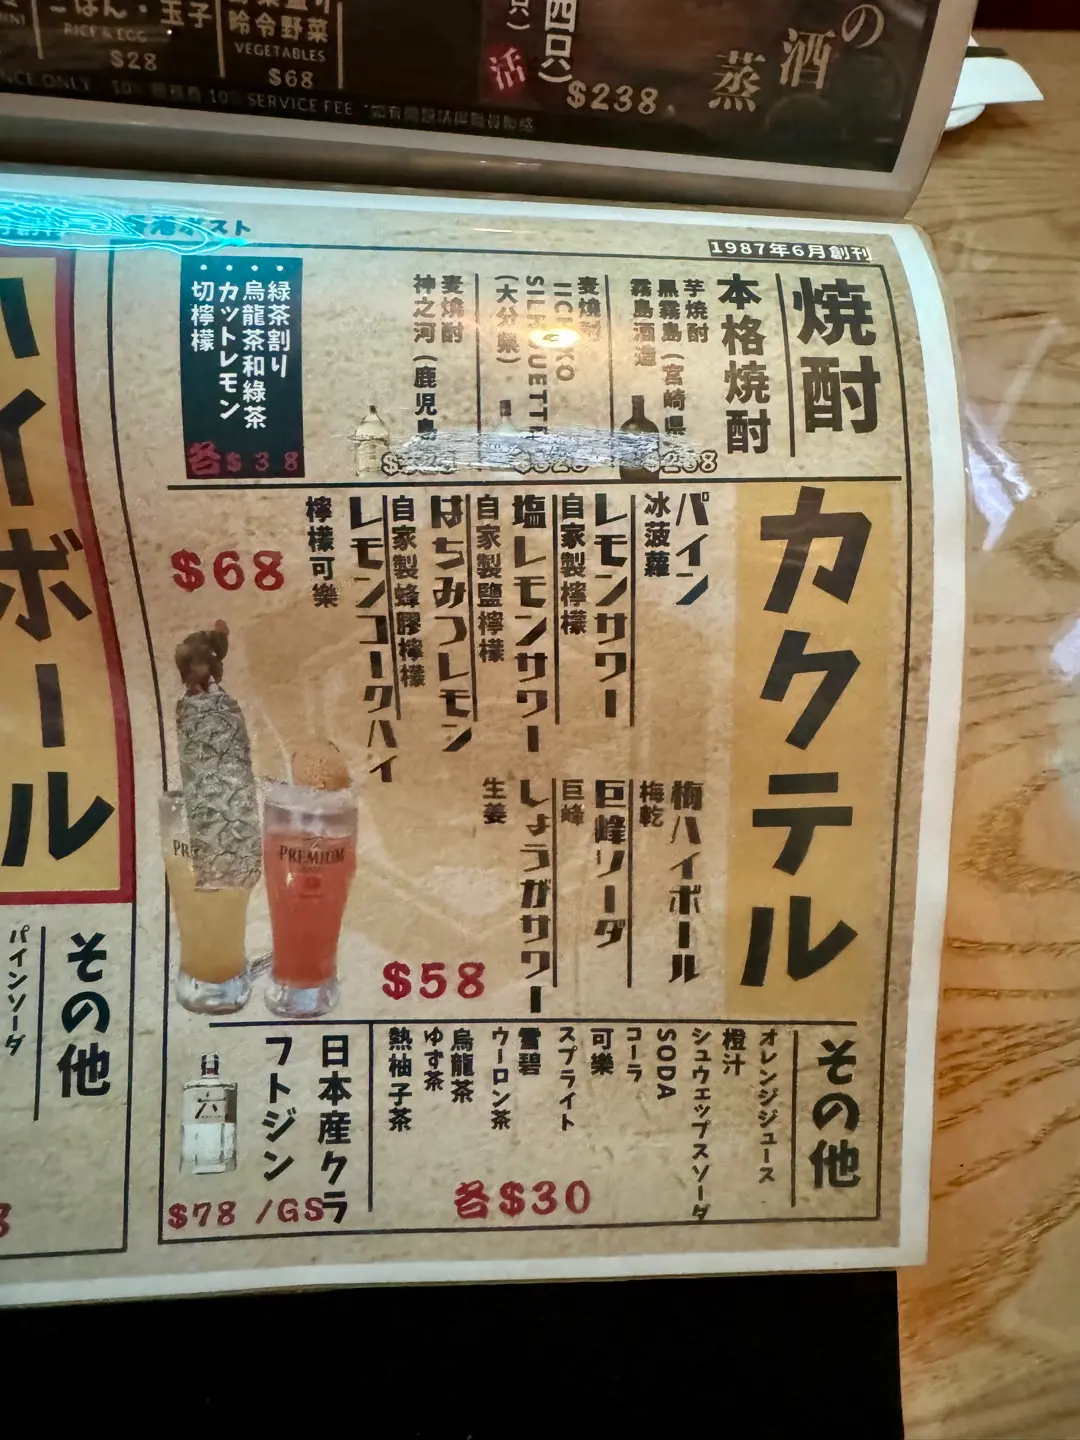 ごはん・玉子
RICE & EGG
$28
時令野菜
VEGETABLES
$68
四只)
活
$238
の
酒
蒸
10% SERVICE FEE
香港ポスト
1987年6月創刊
焼酎
本格焼酎
芋焼酎
黒霧島(宮崎県
霧島酒造
麦焼酎
IICHIKO
SILHOUETTE
(大分県)
麦焼酎
神之河(鹿児島
・緑茶割り
・烏龍茶和綠茶
・カットレモン
・切檸檬
各$38
カクテル
パイン
冰菠蘿
レモンサワー
自家製檸檬
塩レモンサワー
自家製鹽檸檬
はちみつレモン
自家製蜂膠檸檬
レモンコークハイ
檸檬可樂
$68
梅ハイボール
梅乾
巨峰ソーダ
巨峰
しょうがサワー
生姜
$58
PREMIUM
その他
オレンジジュース
橙汁
シュウェップスソーダ
SODA
コーラ
可樂
スプライト
雪碧
ウーロン茶
烏龍茶
ゆず茶
熱柚子茶
各$30
日本産クラ
フトジン
六
$78 /GS
イボール
その他
パインソーダ